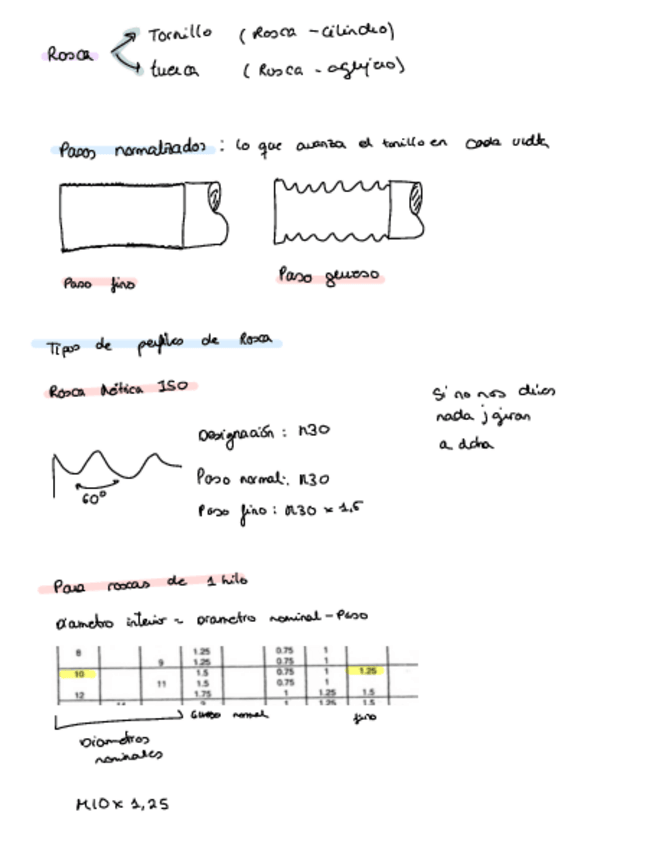 Rosca
Tornillo (Rosca - cilindro)
tuerca (Rosca - agujero)
Pasos normalizados: lo que avanza el tornillo en cada vuelta
Paso fino
Paso grueso
Tipos de perfiles de Rosca
Rosca Métrica ISO
Si no nos dicen
nada j giran
a dcha
Designación: M30
60°
Paso normal: M30
Paso fino: M30 x 1,5
Para roscas de 1 hilo
Diametro interior ~ Diametro nominal - Paso
8 1.25 0.75 1
9 1.25 0.75 1
10 1.5 0.75 1 1.25
11 1.5 0.75 1
12 1.75 1 1.25 1.5
1 1.25 1.5
Grueso normal
fino
Diametros
nominales
M10 x 1,25